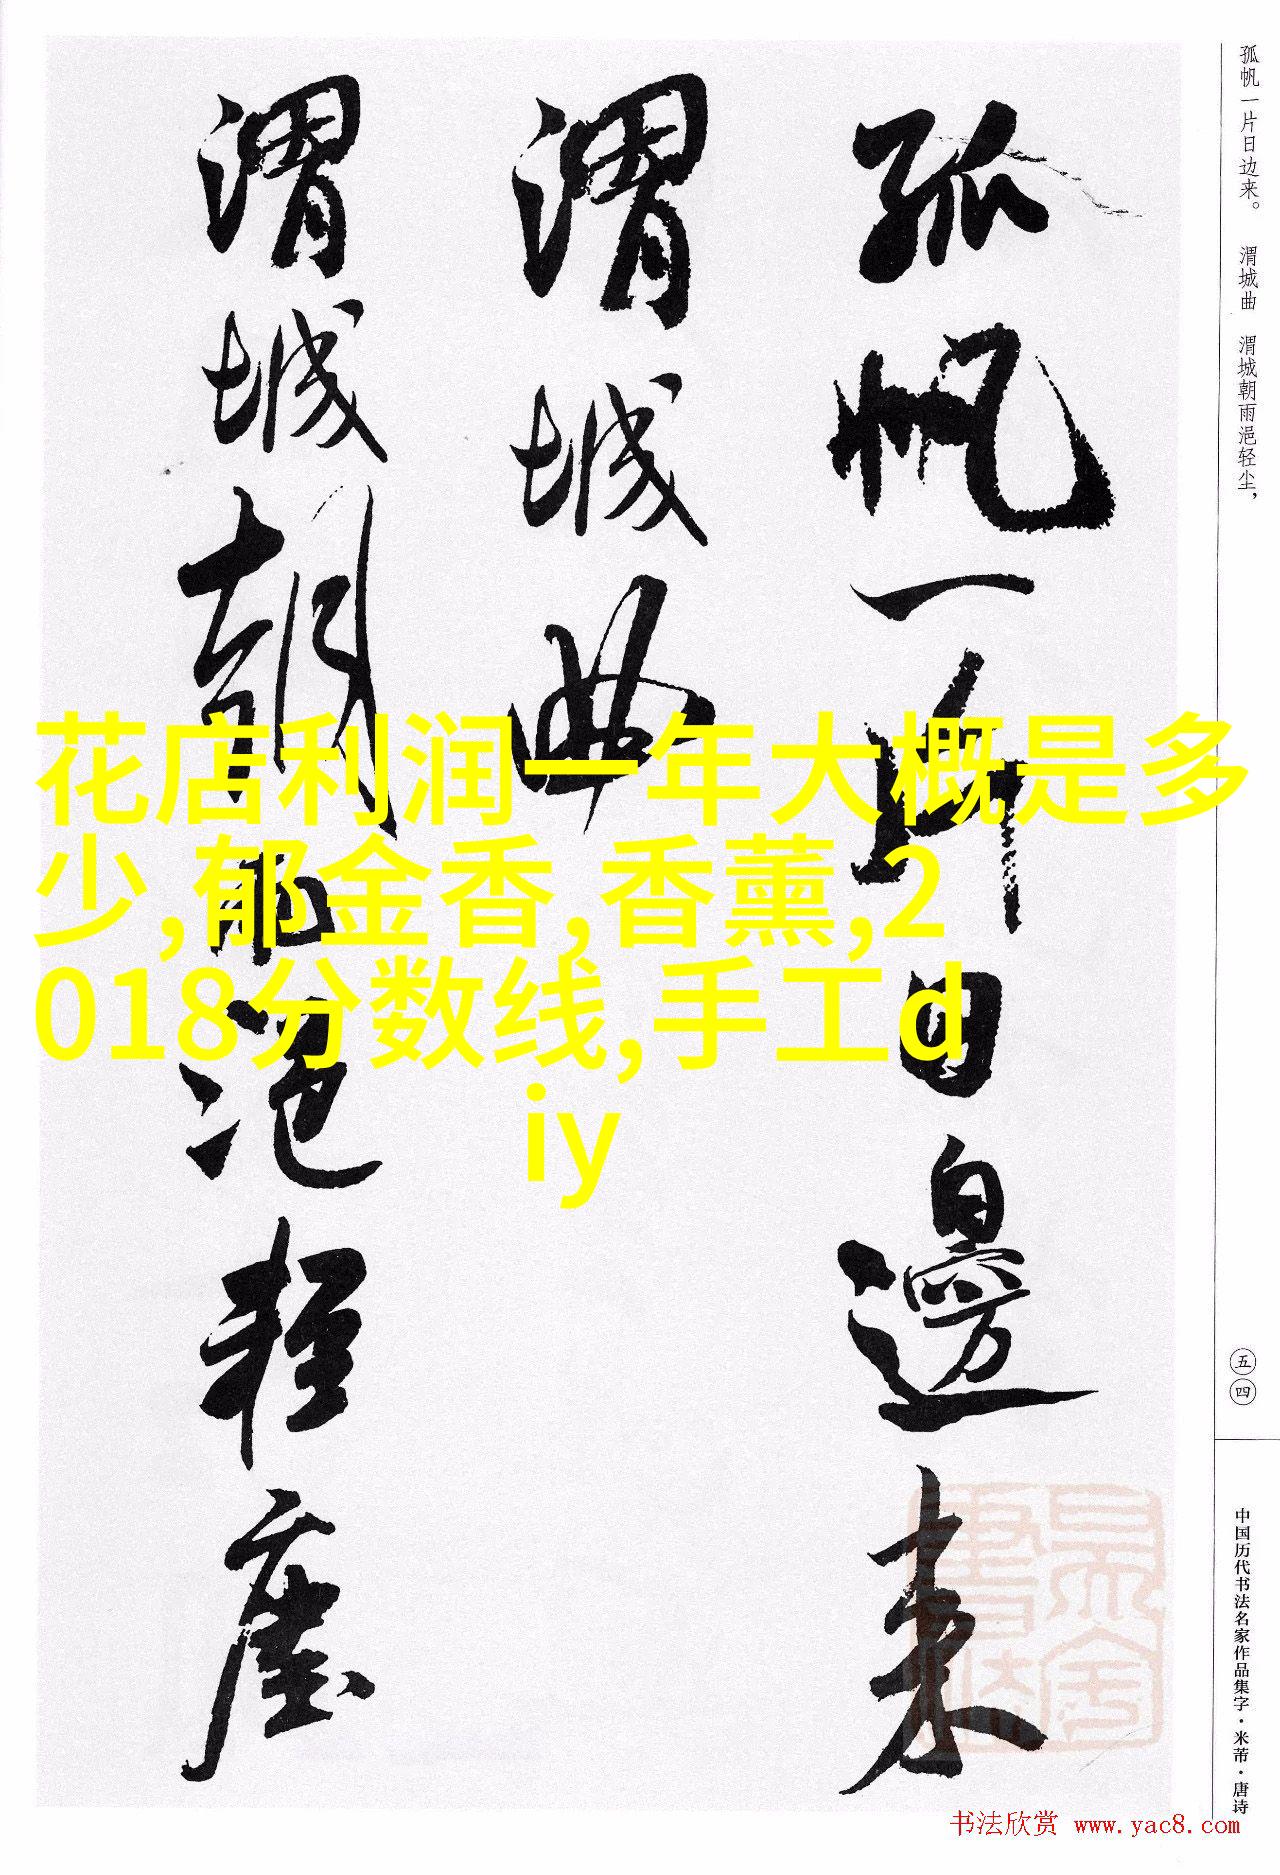 孤帆一片日边来。 渭城曲 渭城朝雨浥轻尘,
孤帆一片日邊来
渭城曲
渭城朝雨浥轻塵
花店利润一年大概是多
少,郁金香,香薰,2
018分数线,手工d
iy
五四
中国历代书法名家作品集字·米芾·唐诗
书法欣赏 www.yac8.com